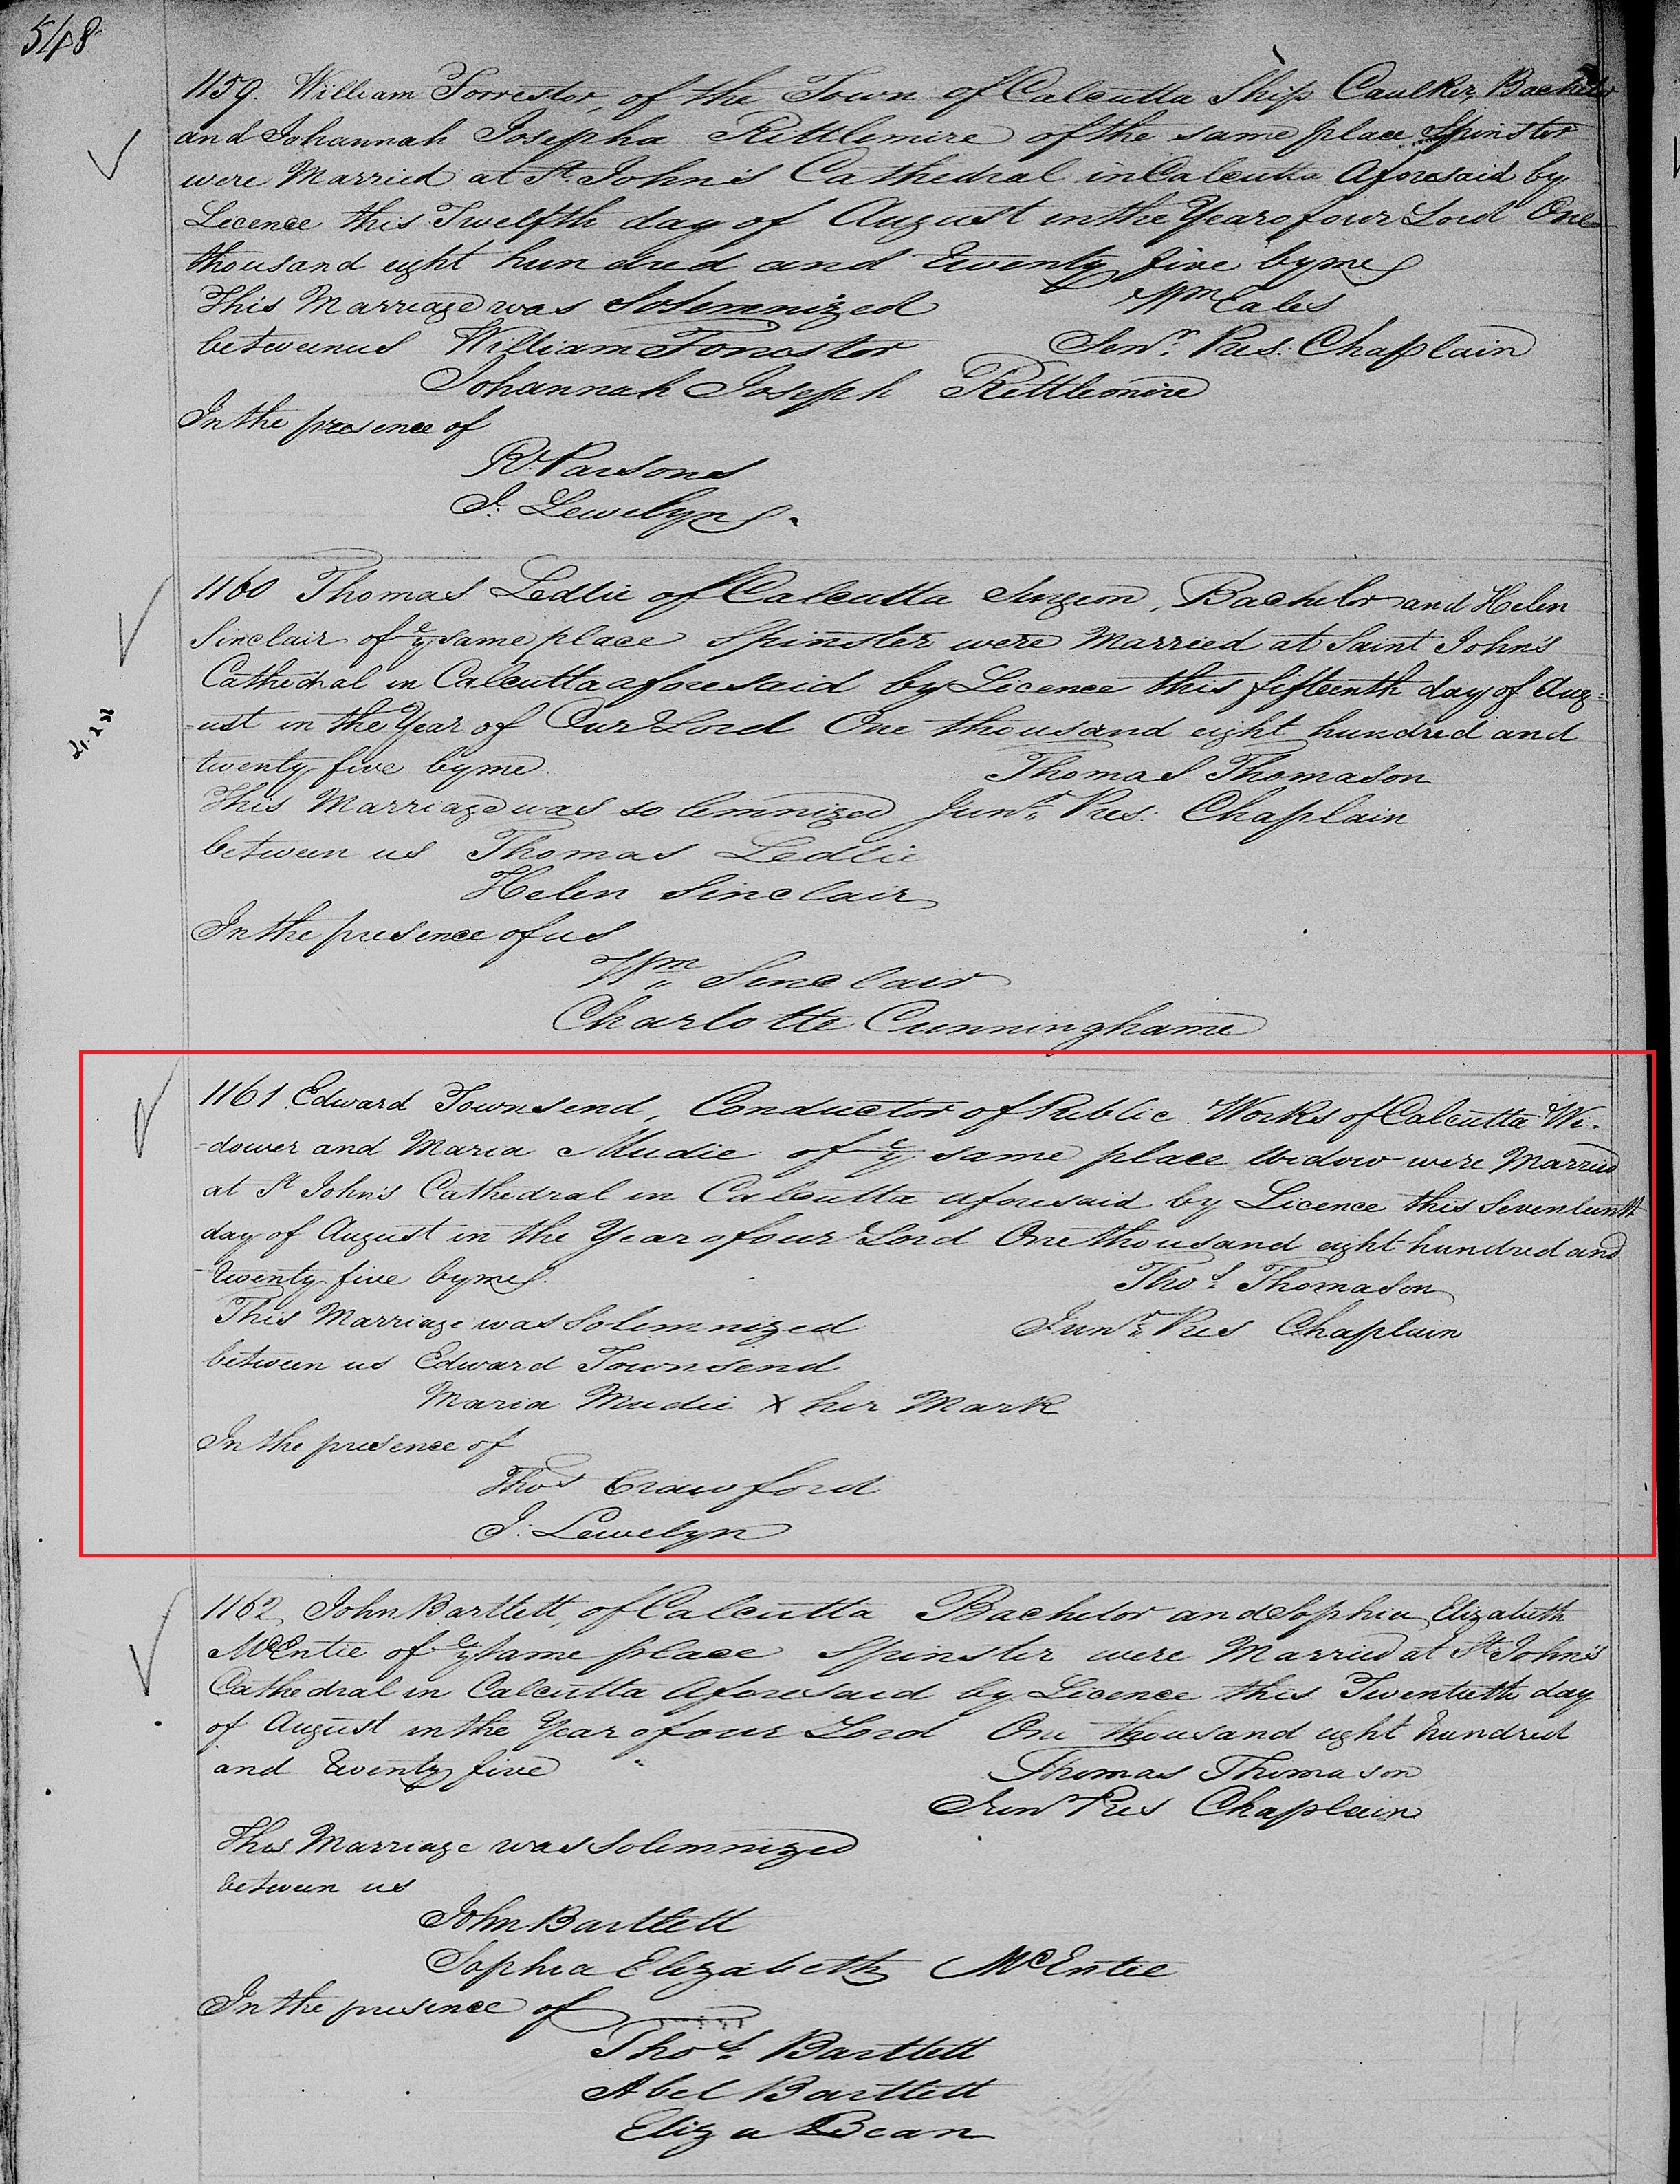 548
1159. William Forrestor, of the Town of Calcutta Ship Caulker, Bachelor
and Johannah Josepha Rittlemire of the same place Spinster
were Married at St. John's Cathedral in Calcutta Aforesaid by
Licence this Twelfth day of August in the Year of our Lord One
thousand eight hundred and twenty five by me
This Marriage was Solemnized Wm Eales
between us William Forrestor Senr. Pres: Chaplain
Johannah Joseph Rittlemire
In the presence of
R. Parsons
J. Lewelyn
1160 Thomas Ledlie of Calcutta Surgeon, Bachelor and Helen
Sinclair of ye same place Spinster were Married at Saint John's
Cathedral in Calcutta aforesaid by Licence this fifteenth day of Aug=
-ust in the Year of Our Lord One thousand eight hundred and
twenty five by me Thomas Thomason
This Marriage was solemnized Junr. Pres: Chaplain
between us Thomas Ledlie
Helen Sinclair
In the presence of us
Wm Sinclair
Charlotte Cunninghame
1161 Edward Townsend, Conductor of Public Works of Calcutta Wi-
-dower and Maria Mudie of ye same place Widow were Married
at St John's Cathedral in Calcutta aforesaid by Licence this Seventeenth
day of August in the Year of our Lord One thousand eight hundred and
twenty five by me Thos. Thomason
This Marriage was Solemnized Junr. Pres Chaplain
between us Edward Townsend
Maria Mudie X her Mark
In the presence of
Thos Crawford
J. Lewelyn
1162, John Bartlett, of Calcutta Bachelor and Sophia Elizabeth
McEntee of ye same place Spinster were Married at St John's
Cathedral in Calcutta Aforesaid by Licence this Twentieth day
of August in the Year of our Lord One thousand eight hundred
and twenty five Thomas Thomason
Junr Pres Chaplain
This Marriage was Solemnized
between us
John Bartlett
Sophia Elizabeth McEntee
In the presence of
Thos. Bartlett
Abel Bartlett
Eliza Bean